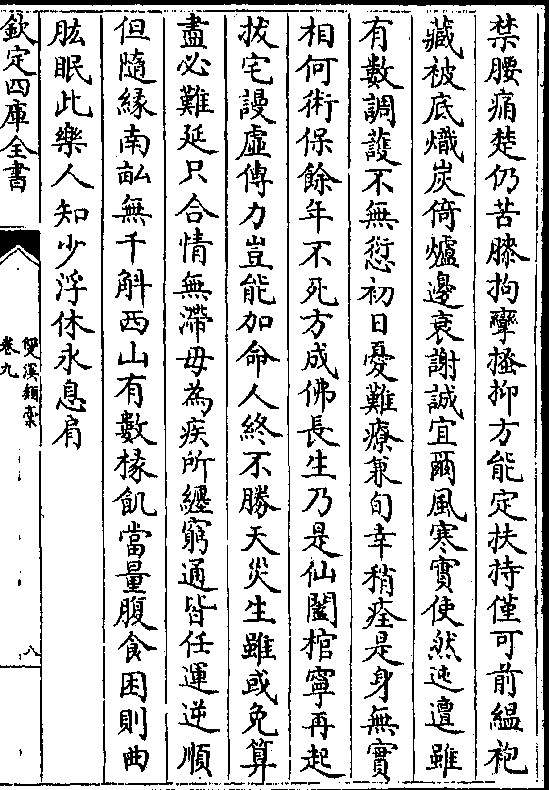 禁腰痛楚仍苦膝拘攣搔抑方能定扶持僅可前縕袍
藏被底熾炭倚爐邊衰謝誠宜爾風寒實使然迍邅雖
有數調護不無愆初日憂難療兼旬幸稍痊是身無實
相何術保餘年不死方成佛長生乃是仙闔棺寧再起
拔宅謾虛傳力豈能加命人終不勝天災生雖或免算
盡必難延只合情無滯毋為疾所纏窮通皆任運逆順
但隨緣南畝無千斛西山有數椽飢當量腹食困則曲
肱眠此樂人知少浮休永息肩
欽定四庫全書
雙溪類稾
卷九
八